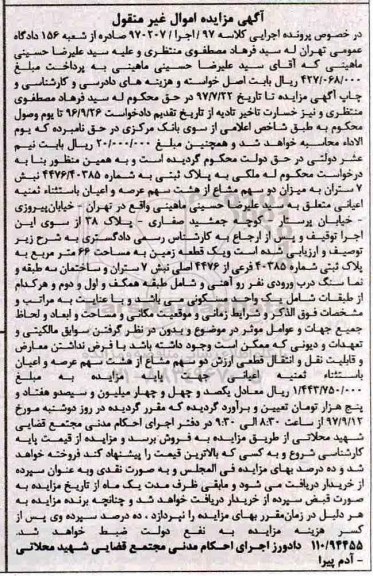 آگهی مزایده اموال غیر منقول
در خصوص پرونده اجرایی کلاسه ۹۷/اجرا/۹۷۰۲۰۷ صادره از شعبه ۱۵۶ دادگاه
عمومی تهران له سید فرهاد مصطفوی منتظری و علیه سید علیرضا حسینی
ماهینی که آقای سید علیرضا حسینی ماهینی به پرداخت مبلغ
۴۲۷/۰۶۸/۰۰۰ ریال بابت اصل خواسته و هزینه های دادرسی و کارشناسی و
چاپ آگهی مزایده تا تاریخ ۹۷/۷/۲۲ در حق محکوم له سید فرهاد مصطفوی
منتظری و نیز خسارت تاخیر تادیه از تاریخ تقدیم دادخواست ۹۶/۹/۲۶ تا یوم وصول
محکوم به طبق شاخص اعلامی از سوی بانک مرکزی در حق نامبرده که یوم
الاداء محاسبه خواهد شد و همچنین مبلغ ۲۰/۰۰۰/۰۰۰ ریال بابت نیم
عشر دولتی در حق دولت محکوم گردیده است و به همین منظور بنا به
درخواست محکوم له ملکی به پلاک ثبتی به شماره ۴۴۷۶/۴۰۳۸۵ نبش
۷ ستران به میزان دو سهم مشاع از هشت سهم عرصه و اعیان باستثناء ثمنیه
اعیانی متعلق به سید علیرضا حسینی ماهینی واقع در تهران - خیابان پیروزی
- خیابان پرستار - کوچه جمشید صفاری - پلاک ۳۸ از سوی این
اجرا توقیف و پس از ارجاع به کارشناس رسمی دادگستری به شرح زیر
توصیف و ارزیابی شده است ویک قطعه زمین به مساحت ۶۶ متر مربع به
پلاک ثبتی شماره ۴۰۳۸۵ فرعی از ۴۴۷۶ اصلی نبش ۷ ستران و ساختمان سه طبقه و
نما سنگ درب ورودی نفر رو آهنی و شامل طبقه همکف و اول و دوم و هرکدام
از طبقات شامل یک واحد مسکونی می باشد و با عنایت به مراتب و
مشخصات فوق الذکر و شرایط زمانی و موقعیت مکانی و مساحت و ابعاد و لحاظ
جمیع جهات و عوامل موثر در موضوع و بدون در نظر گرفتن سوابق مالکیتی و
تعهدات و دیونی که ممکن است وجود داشته باشد با فرض نداشتن معارض
و قابلیت نقل و انتقال قطعی ارزش دو سهم مشاع از هشت سهم عرصه و اعیان
باستثناء ثمنیه اعیانی جهت پایه مزایده به مبلغ
۱/۴۴۳/۷۵۰/۰۰۰ ریال معادل یکصد و چهل و چهار میلیون و سیصدو هفتاد و
پنج هزار تومان تعیین و برآورد گردیده که مقرر گردیده در روز دوشنبه مورخ
۹۷/۹/۱۲ از ساعت ۸:۳۰ الی ۹:۳۰ در دفتر اجرای احکام مدنی مجتمع قضایی
شهید محلاتی از طریق مزایده به فروش برسد و مزایده از قیمت پایه
کارشناسی شروع و به کسی که بالاترین قیمت را پیشنهاد کند فروخته خواهد
شد و ده درصد بهای مزایده فی المجلس و به صورت نقدی وبه عنوان سپرده
از خریدار دریافت می شود و مابقی ظرف مدت یک ماه از تاریخ مزایده به
صورت قبض سپرده از خریدار دریافت خواهد شد و چنانچه برنده مزایده به
هر دلیل در زمان مقرر بهای مزایده را نپردازد ، ده درصد سپرده وی پس از
کسر هزینه مزایده به نفع دولت ضبط خواهد شد.
۱۱۰/۹۴۴۵۵ دادورز اجرای احکام مدنی مجتمع قضایی شهید محلاتی
- آدم پیرا